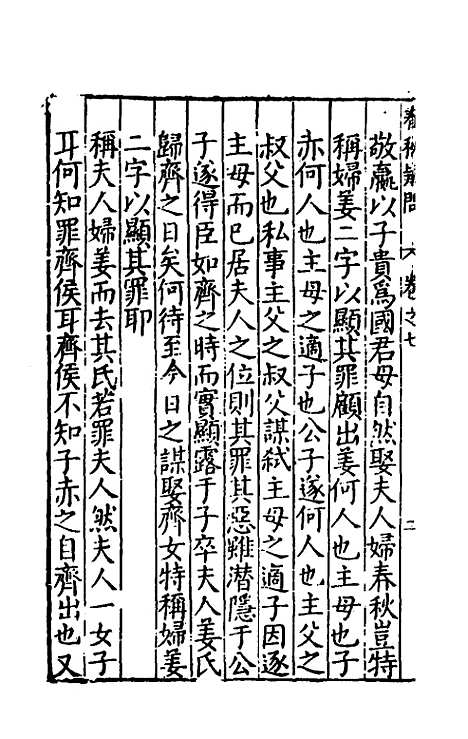 春秋疑問 卷之七 二
敬嬴以子貴爲國君母自然娶夫人婦春秋豈特
稱婦姜二字以顯其罪顧出姜何人也主母也子
赤何人也主母之適子也公子遂何人也主父之
叔父也私事主父之叔父謀弑主母之適子因逐
主母而已居夫人之位則其罪其惡雖潜隱于公
子遂得臣如齊之時而實顯露于子卒夫人姜氏
歸齊之日矣何待至今日之謀娶齊女特稱婦姜
二字以顯其罪耶
稱夫人婦姜而去其氏若罪夫人然夫人一女子
耳何知罪齊侯耳齊侯不知子赤之自齊出也又